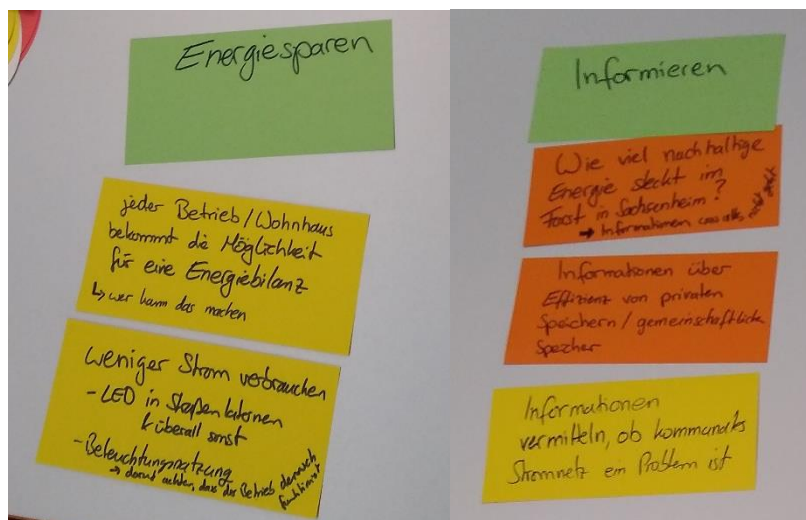 Energiesparen
jeder Betrieb/Wohnhaus
bekommt die Möglichkeit
für eine Energiebilanz
↳ wer kann das machen
weniger Strom verbrauchen
- LED in Straßenlaternen
& überall sonst
- Beleuchtungsnutzung
→ darauf achten, dass der Betrieb dennoch
funktioniert
Informieren
Wie viel nachhaltige
Energie steckt im
Forst in Sachsenheim?
→ Informationen was alles
Informationen über
Effizienz von privaten
Speichern / gemeinschaftliche
Speicher
Informationen
vermitteln, ob kommunales
Stromnetz ein Problem ist